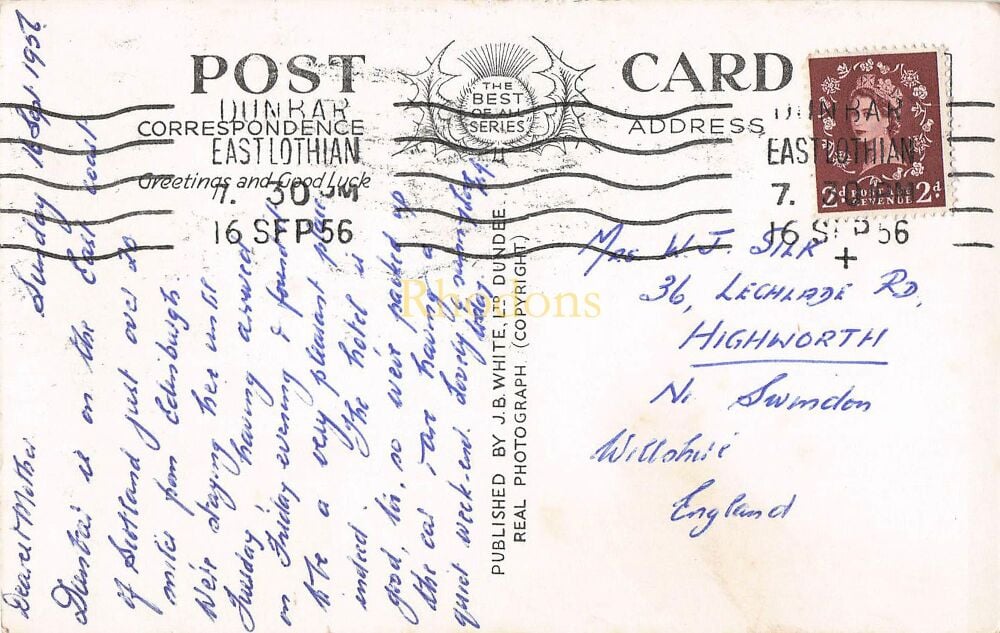 POST CARD
THE
BEST
OF ALL
SERIES
CORRESPONDENCE
ADDRESS
Greetings and Good Luck
DUNBAR
EAST LOTHIAN
7. 30 PM
16 SEP 56
DUNBAR
EAST LOTHIAN
7. 30 PM
16 SEP 56
POSTAGE
REVENUE
2d 2d
Sunday 16 Sept 1956
Dearest Mother
Dunbar is on the East coast
of Scotland just over 20
miles from Edinburgh.
We're staying here until
Tuesday, having arrived
on Friday evening & found it
to be a very pleasant place
indeed. The hotel is
good, too, so we've parked up
the car & are having a
quiet week-end. Lovely sunny
PUBLISHED BY J.B. WHITE, LTD DUNDEE.
REAL PHOTOGRAPH (COPYRIGHT)
Rhodons
Mrs W. J.
36, LECHLADE RD,
HIGHWORTH
Nr Swindon
Wiltshire
England